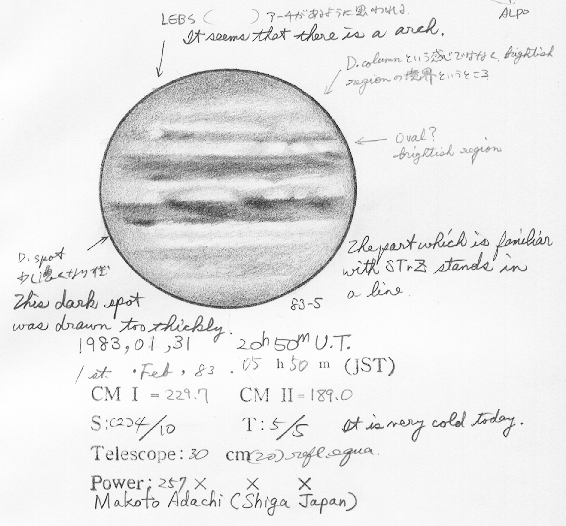 ALPO
LEBS (        ) アーチがあるように思われる
It seems that there is a arch.
D.columnという感じではなく, brightish
regionの境界というところ
Oval?
brightish region
D. spot
The part which is familiar
with STrZ stands in
a line.
This dark spot
was drawn too thickly.
83-5
1983, 01, 31 20h 50m U.T.
1st. Feb, 83. 05 h 50 m (JST)
CM I = 229.7 CM II = 189.0
S:(2)4/10 T: 5/5 It is very cold today.
Telescope: 30 cm(20) refl. equa.
Power: 257 × × ×
Makoto Adachi (Shiga Japan)